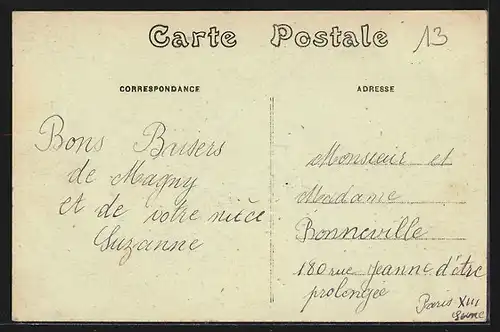 Carte Postale
13
CORRESPONDANCE
Bons Baisers
de Magny
et de votre nièce
Suzanne
ADRESSE
Monsieur et
Madame
Bonneville
180 rue Jeanne d'être
prolongée
Paris XIII
Seine